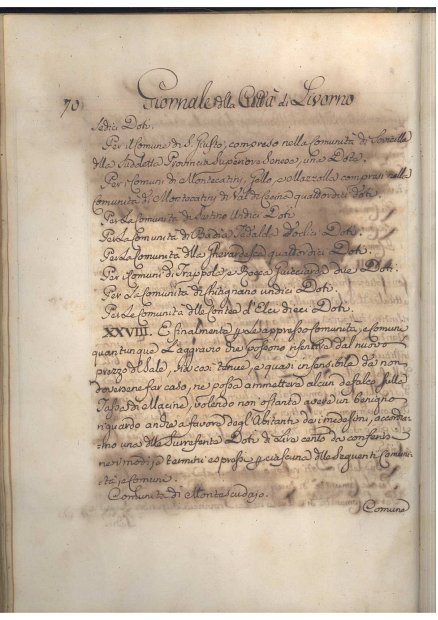 70 Giornale della Città di Livorno
sedici Doti.
Per il Comune di S. Giusto, compreso nella Comunità di
della Suddetta Provincia Superiore Senese, una Dote.
Per i Comuni di Montecatini, Gello, e Mazzolla compresi nella
Comunità di Montecatini di Val di Cecina quattordici doti.
Per la Comunità di Sestino Undici Doti.
Per la Comunità di Badia Tedalda dodici Doti.
Per la Comunità della Gherardesca quattordici Doti.
Per i Comuni di Treppole, e Rocca Guicciarda due Doti.
Per la Comunità di Chitignano undici Doti.
Per la Comunità della Contea d'Elci dieci Doti.
XXVIII. E finalmente le appresso comunità, e comuni
quantunque L'aggravio che possono risentire dal nuovo
prezzo di Sale, sia così tenue, e quasi insensibile da non
doversene far caso, ne possa ammettersi alcun defalco sulle
Tasse di Macine, volendo non ostante avere un benigno
riguardo anche a favore degl'Abitanti dei medesimi,
una delle Surriferite Doti di Lire cento da conferirsi
nei modi, e termini espressi a ciascuna delle Seguenti Comuni-
tà, e Comuni.
Comunità di Montescudajo.
Comune